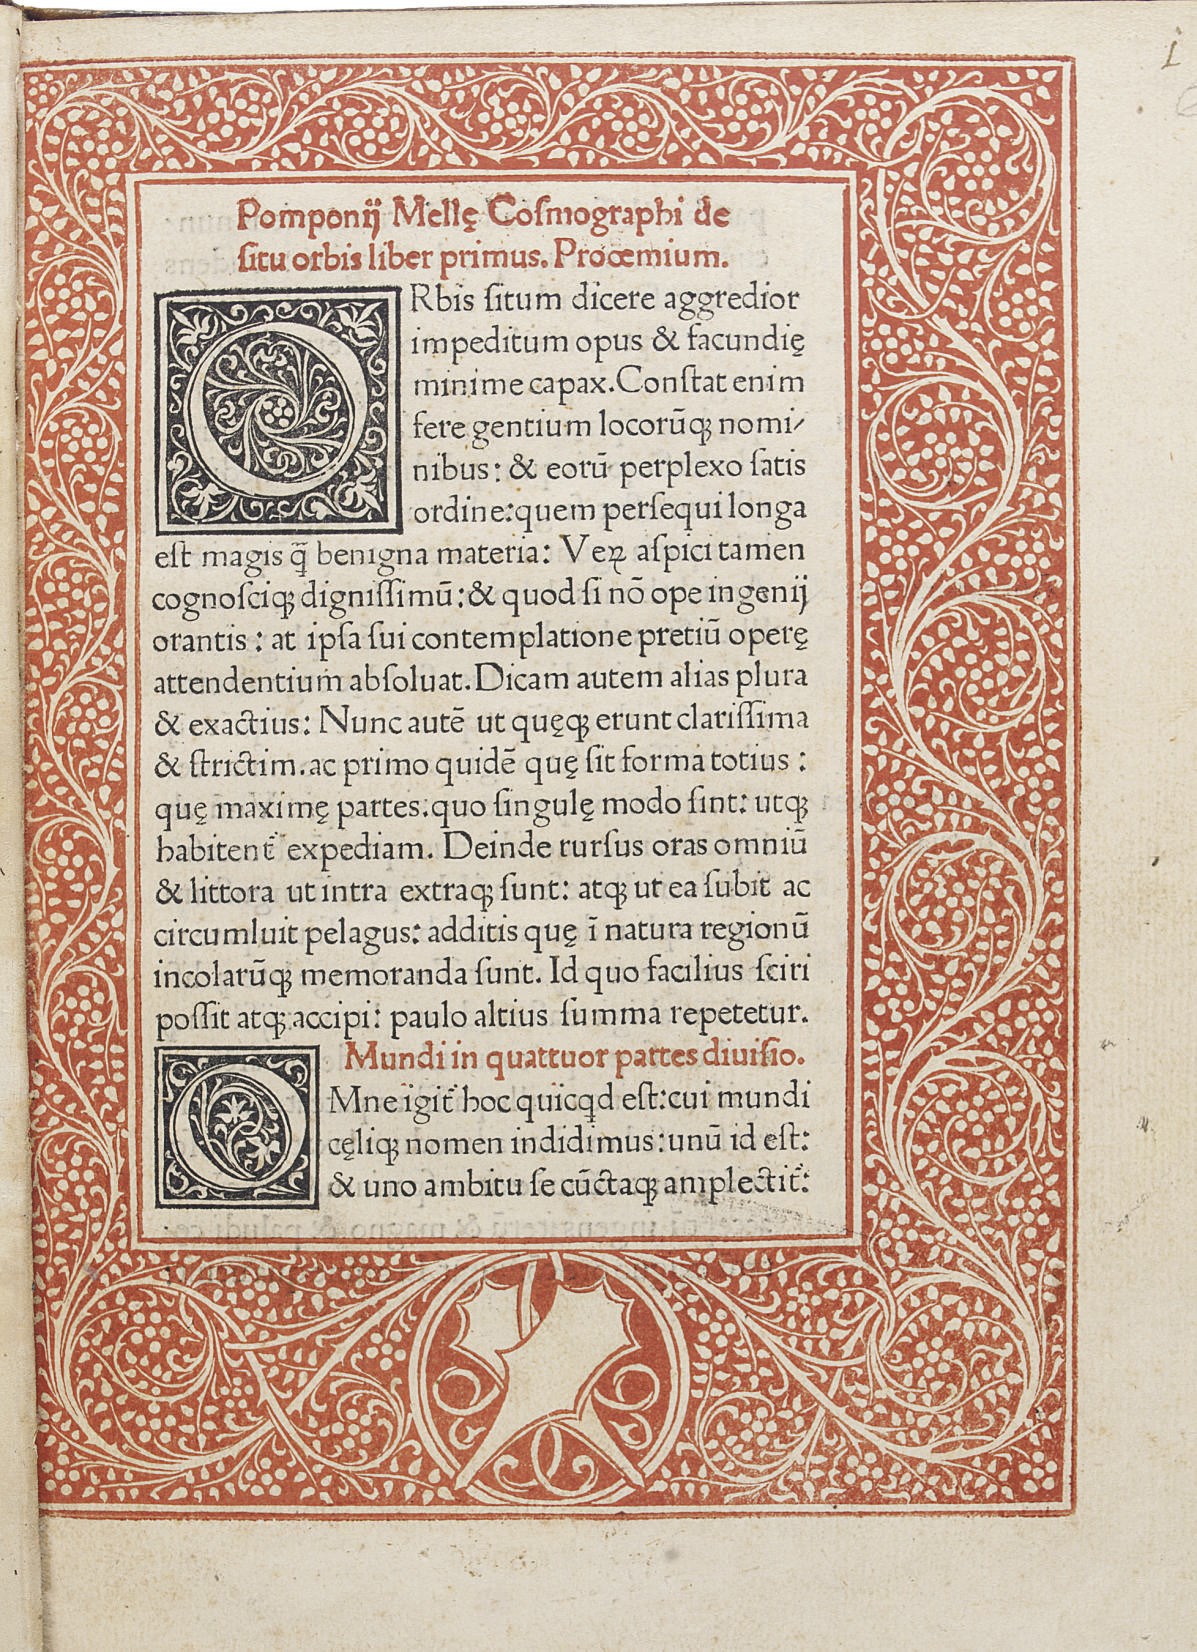 i
Pomponij Mellę Coſmographi de
ſitu orbis liber primus. Prooemium.
ORbis ſitum dicere aggredior
impeditum opus & facundię
minime capax. Conſtat enim
fere gentium locorūqꝫ nomi/
nibus: & eorū perplexo ſatis
ordine: quem perſequi longa
eſt magis q̄ benigna materia: Veꝝ aſpici tamen
cognoſciqꝫ digniſſimū: & quod ſi nō ope ingenij
orantis: at ipſa ſui contemplatione pretiū operę
attendentium abſoluat. Dicam autem alias plura
& exactius: Nunc autē ut quęqꝫ erunt clariſſima
& ſtrictim. ac primo quidē quę ſit forma totius:
quę maximę partes: quo ſingulę modo ſint: utqꝫ
habitent᷑ expediam. Deinde rurſus oras omniū
& littora ut intra extraqꝫ ſunt: atqꝫ ut ea ſubit ac
circumluit pelagus: additis quę ī natura regionū
incolarūqꝫ memoranda ſunt. Id quo facilius ſciri
poſſit atqꝫ accipi: paulo altius ſumma repetetur.
Mundi in quattuor partes diuiſio.
OMne igit᷑ hoc quicq̇d eſt: cui mundi
cęliqꝫ nomen indidimus: unū id eſt:
& uno ambitu ſe cūctaqꝫ amplectit᷑: